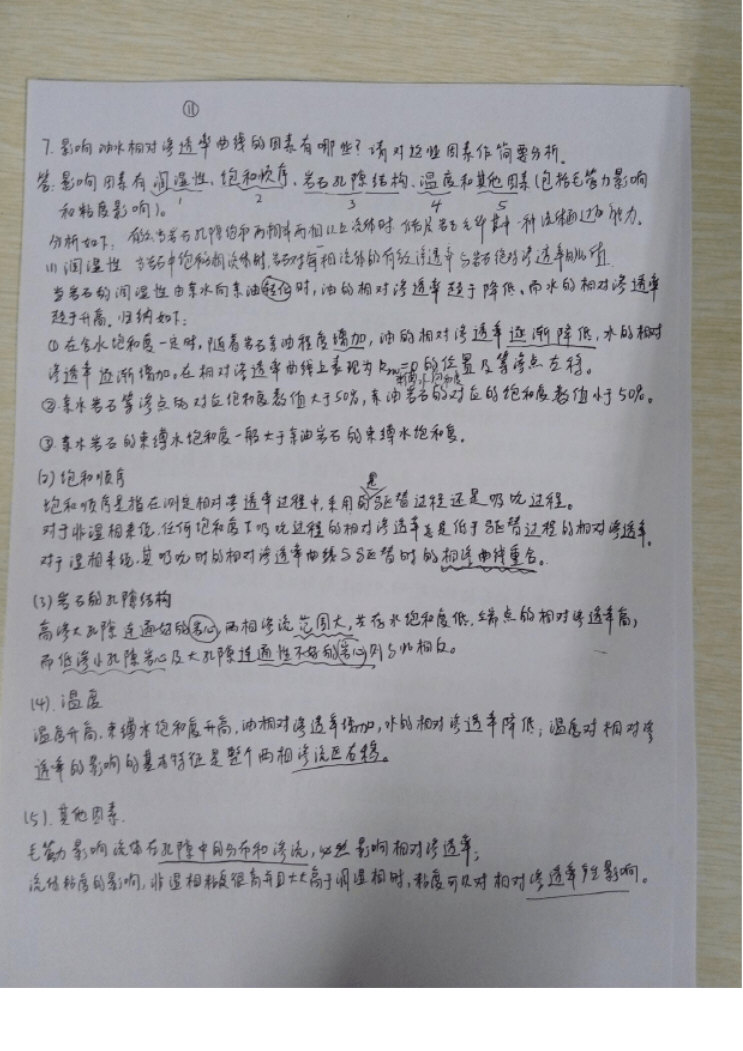 ⑪
7. 影响油水相对渗透率曲线的因素有哪些？请对这些因素作简要分析。
答：影响因素有润湿性、饱和顺序、岩石孔隙结构、温度和其他因素(包括毛管力影响
1 2 3 4 5
和粘度影响)。
分析如下：有效：当岩石孔隙饱和两相或两相以上流体时，岩石允许其中一种流体通过的能力。
(1) 润湿性 当岩石中饱和多相流体时，岩石对每相流体的有效渗透率与岩石绝对渗透率的比值
当岩石的润湿性由亲水向亲油转化时，油的相对渗透率趋于降低、而水的相对渗透率
趋于升高。归纳如下：
① 在含水饱和度一定时，随着岩石亲油程度增加，油的相对渗透率逐渐降低，水的相对
渗透率逐渐增加。在相对渗透率曲线上表现为 =0 的位置及等渗点左移。
②亲水岩石等渗点的对应饱和度数值大于50%，亲油岩石的对应的饱和度数值小于50%。
③ 亲水岩石的束缚水饱和度一般大于亲油岩石的束缚水饱和度。
(2) 饱和顺序
饱和顺序是指在测定相对渗透率过程中，采用的是驱替过程还是吸吮过程。
对于非湿相来说，任何饱和度下吸吮过程的相对渗透率总是低于驱替过程的相对渗透率。
对于湿相来说，其吸吮时的相对渗透率曲线与驱替时的相渗曲线重合。
(3) 岩石的孔隙结构
高渗大孔隙连通好的岩心，两相渗流范围大，共存水饱和度低，端点的相对渗透率高；
而低渗小孔隙岩心及大孔隙连通性不好的岩心则与此相反。
(4). 温度
温度升高，束缚水饱和度升高，油相对渗透率增加，水的相对渗透率降低；温度对相对渗
透率的影响的基本特征是整个两相渗流区右移。
(5). 其他因素.
毛管力影响流体在孔隙中的分布和渗流，必然影响相对渗透率；
流体粘度的影响，非湿相粘度很高并且大大高于润湿相时，粘度可以对相对渗透率产生影响。